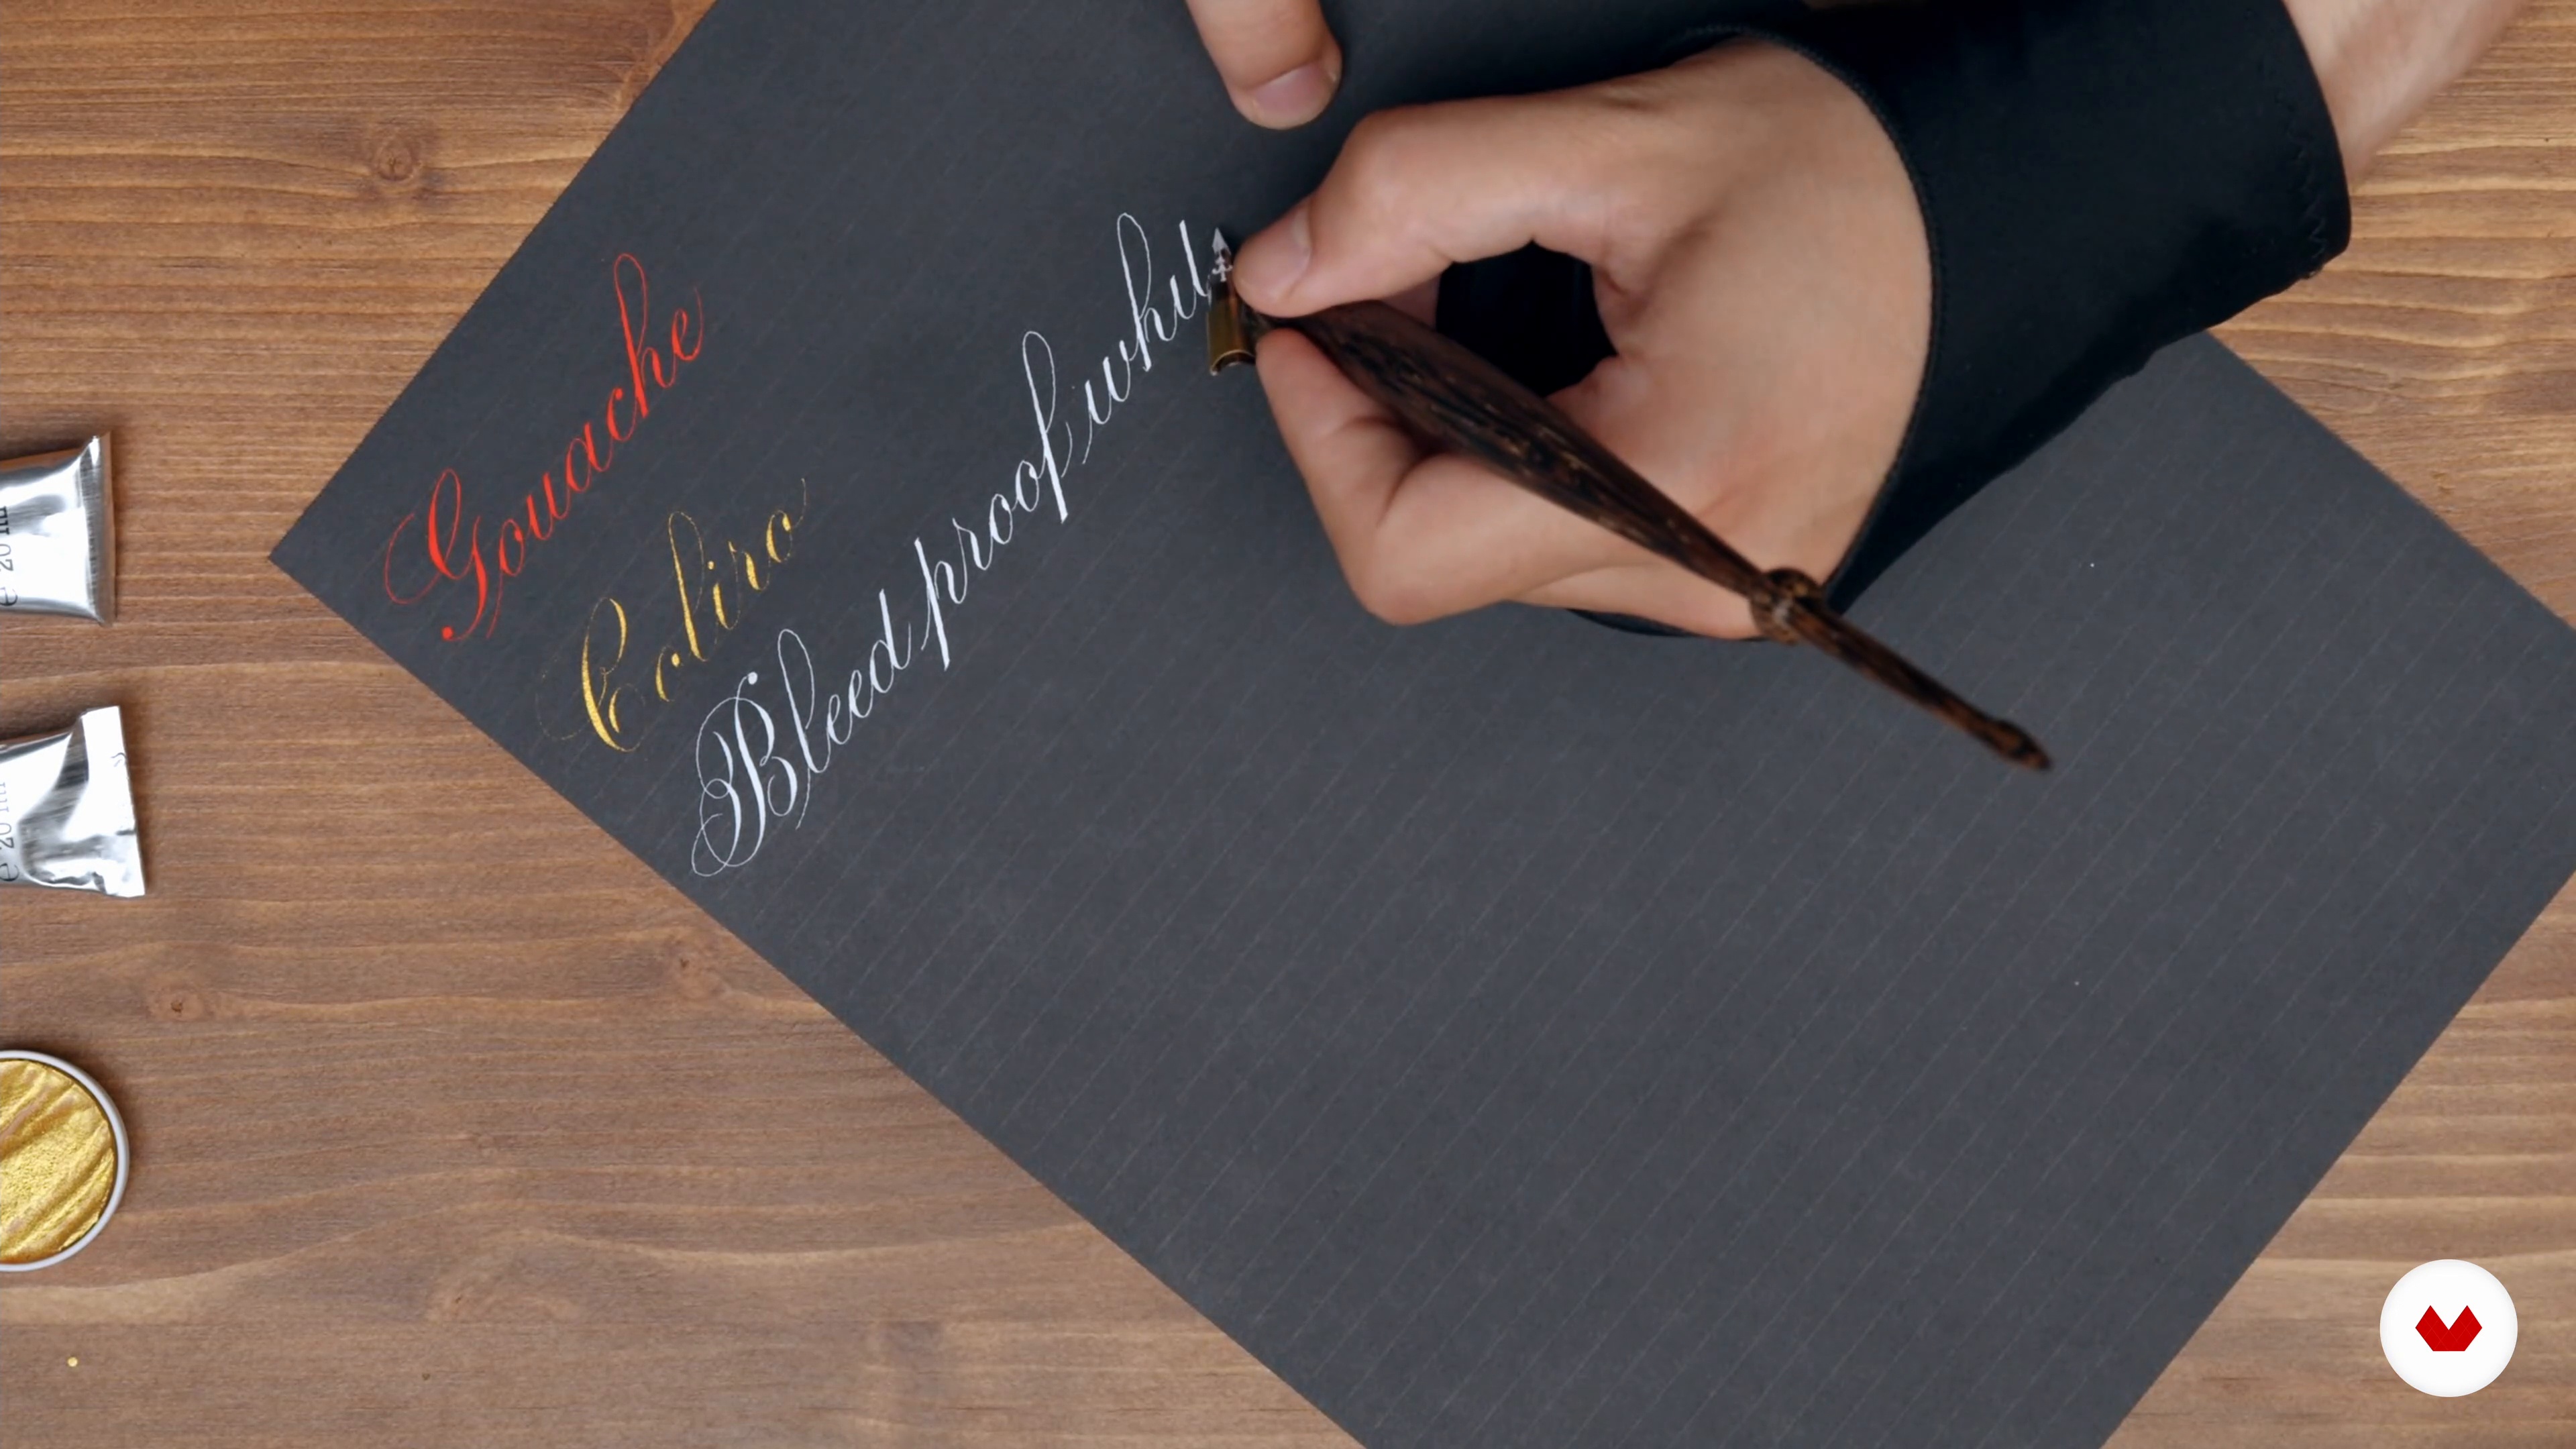 Gouache
Coliro
Bleed proof whit
e 20 ml
e 20 ml